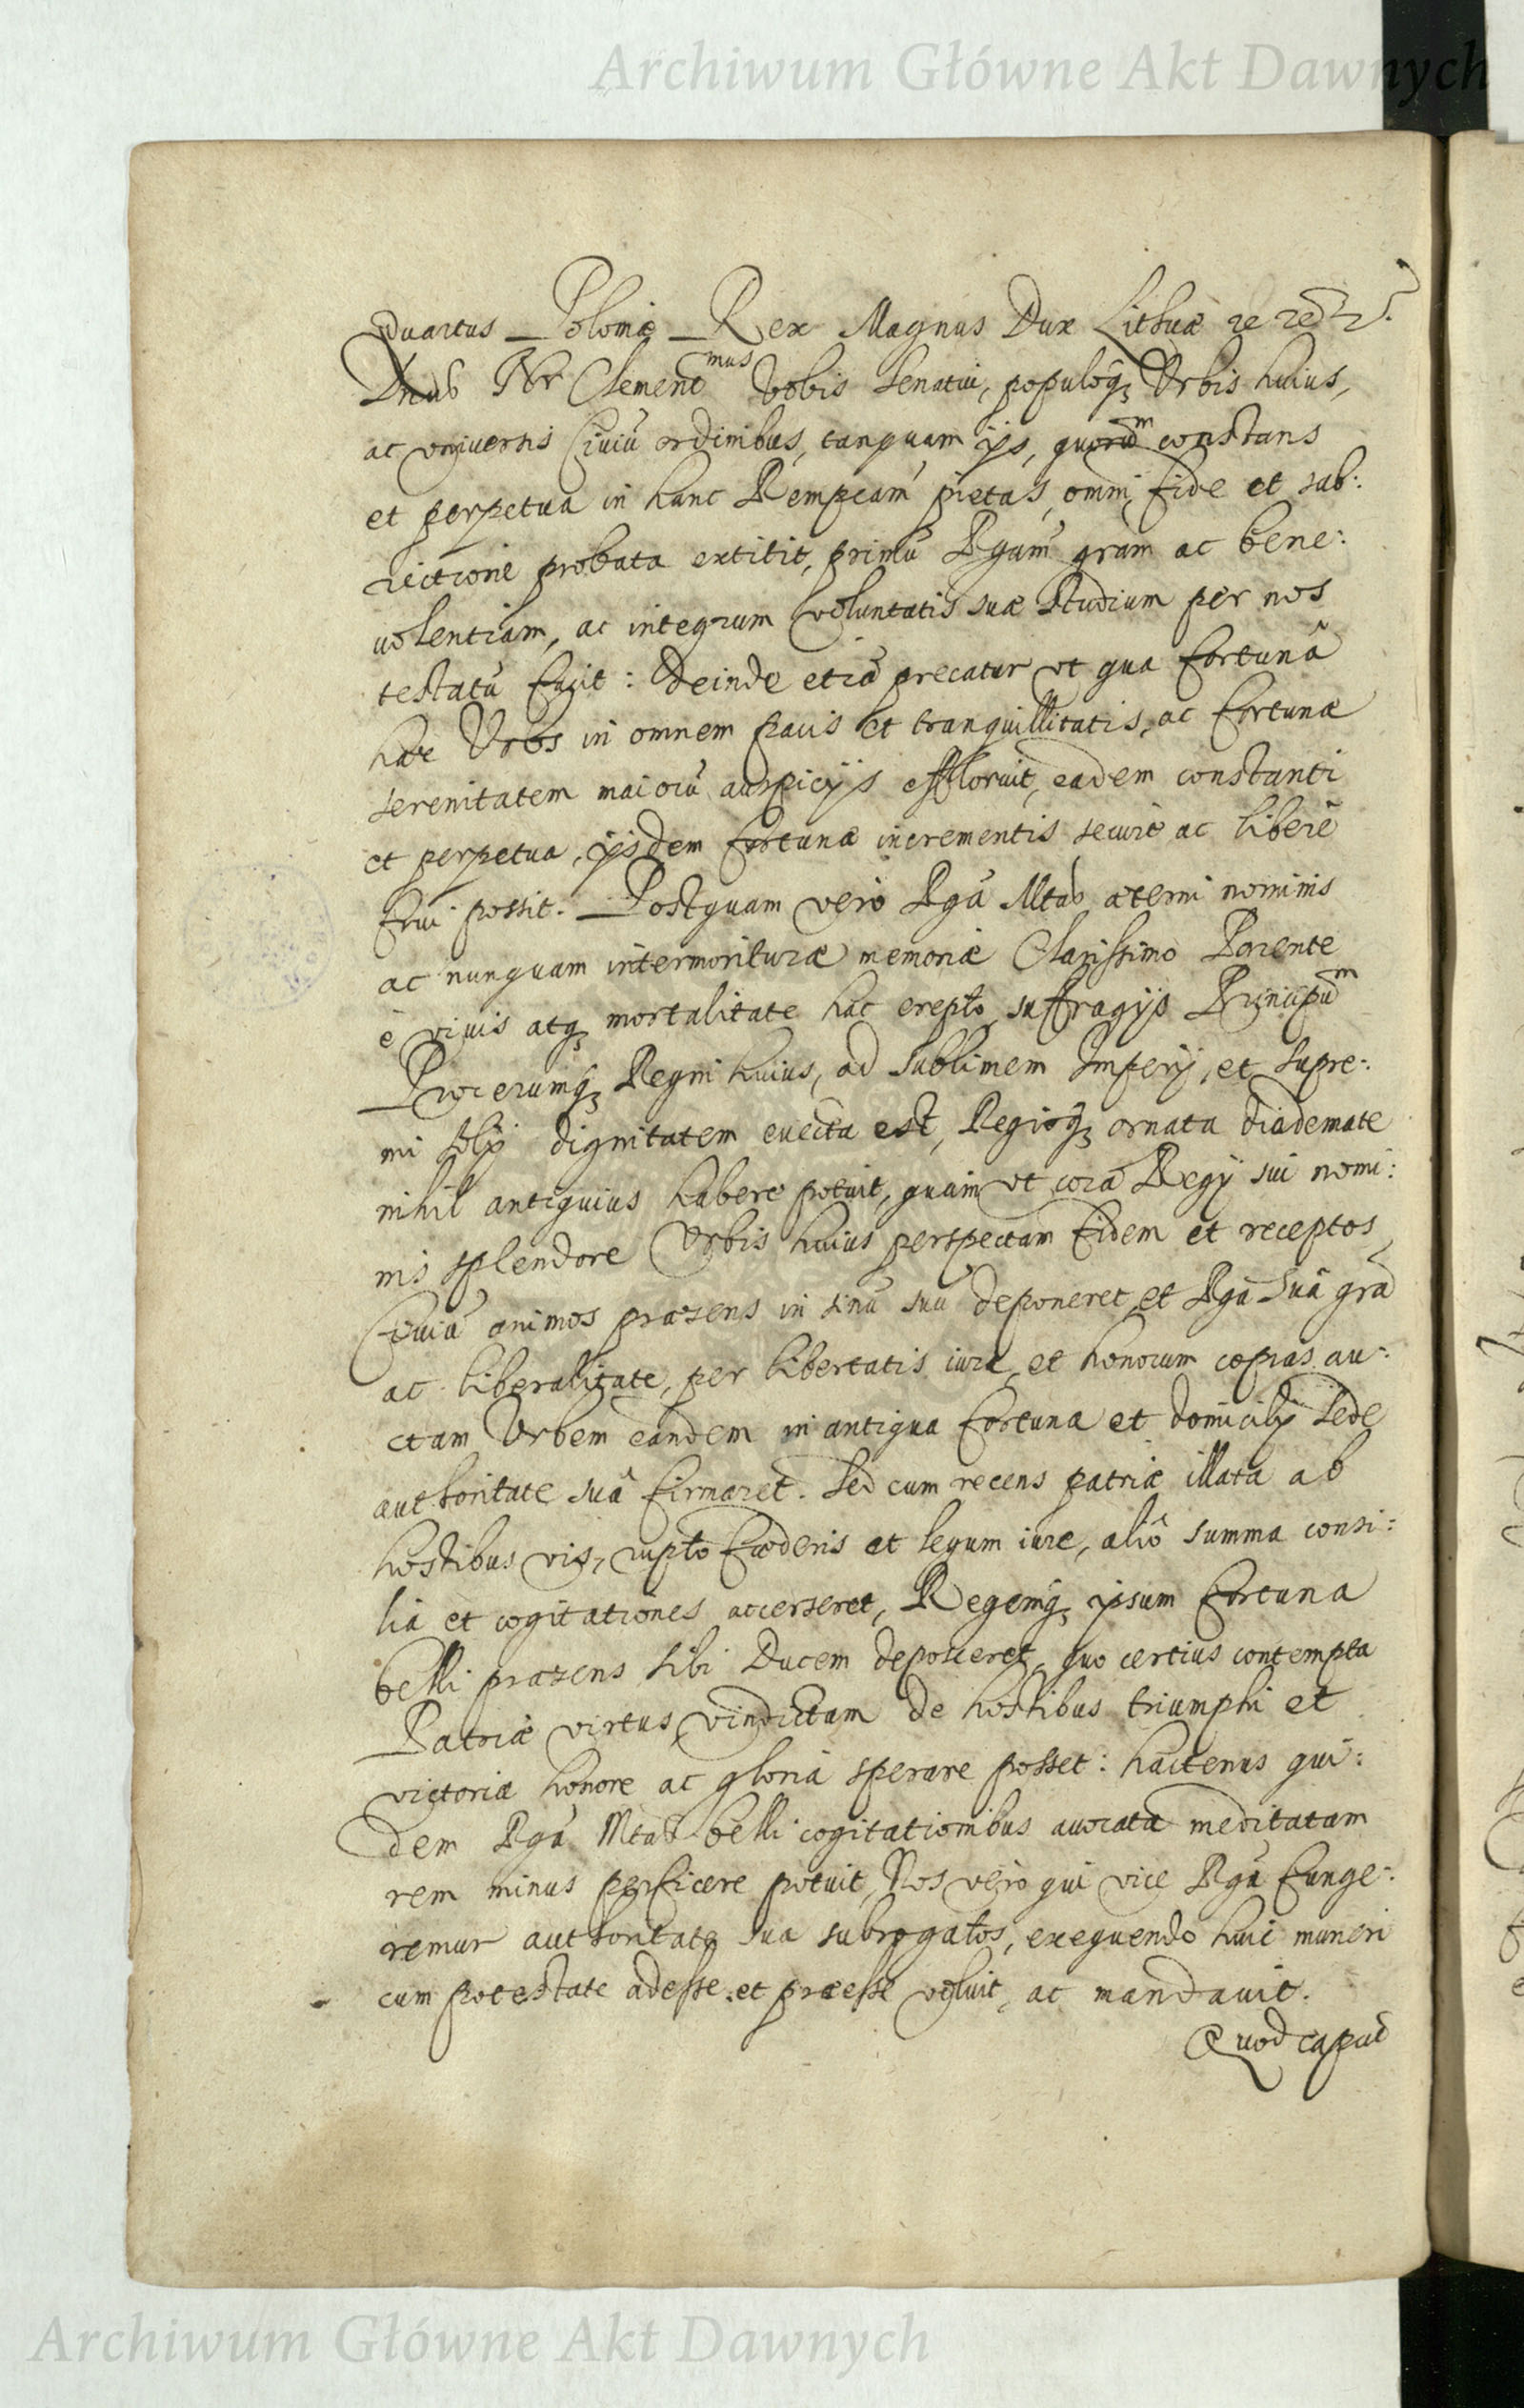 Archiwum Główne Akt Dawnych
Quartus Poloniæ Rex Magnus Dux Lithuæ
Dnus Nr Clementmus Vobis Senatui, populoq₃ Urbis huius,
ac vniuersis Ciuiū ordinibus, tanquam ijs, quorūm constans
et perpetua in hanc Rempcam pietas, omni fide et sub:
iectione probata extitit, primū Rgiam gram ac bene:
uolentiam, ac integrum voluntatis suæ studium per nos
testatū facit: Deinde etiā precatur vt qua fortunâ
hæc Vrbs in omnem pacis et tranquillitatis, ac fortunæ
serenitatem maiorū auspicijs effloruit, eadem constanti
et perpetua, ijsdem fortunæ incrementis secure ac libere
frui possit. Postquam vero Rgia Mtas æterni nominis
ac nunquam intermorituræ memoriæ Clarissimo Parente
è viuis atq₃ mortalitate hac erepto, suffragijs Principūm
Procerumq₃ Regni huius, ad sublimem Imperij, et supre:
mi solij dignitatem euecta est, Regioq₃ ornata diademate
nihil antiquius habere potuit, quam vt corā Regij sui nomi:
nis splendore Vrbis huius perspectam fidem et receptos
Ciuiū animos præsens in sinū suū deponeret, et Rgia sua grā
ac liberalitate, per libertatis iura, et honorum copias au:
ctam Vrbem eandem in antiqua fortuna et domicilij sede
authoritate suâ firmaret. Sed cum recens patriæ illata ab
hostibus vis, rupto fœderis et legum iure, aliò summa consi:
lia et cogitationes accerseret, Regemq₃ ipsum fortuna
belli præsens sibi Ducem deposceret, quo certius contempta
Patriæ virtus, vindictam de hostibus triumphi et
victoriæ honore ac gloria sperare posset: hactenus qui:
dem Rgia Mtas belli cogitationibus auocata meditatam
rem minus perficere potuit, Nos vero qui vice Rgia funge:
remur authoritate sua subrogatos, exequendo huic muneri
cum potestate adesse et præesse voluit, ac mandauit.
Quod caput
Archiwum Główne Akt Dawnych